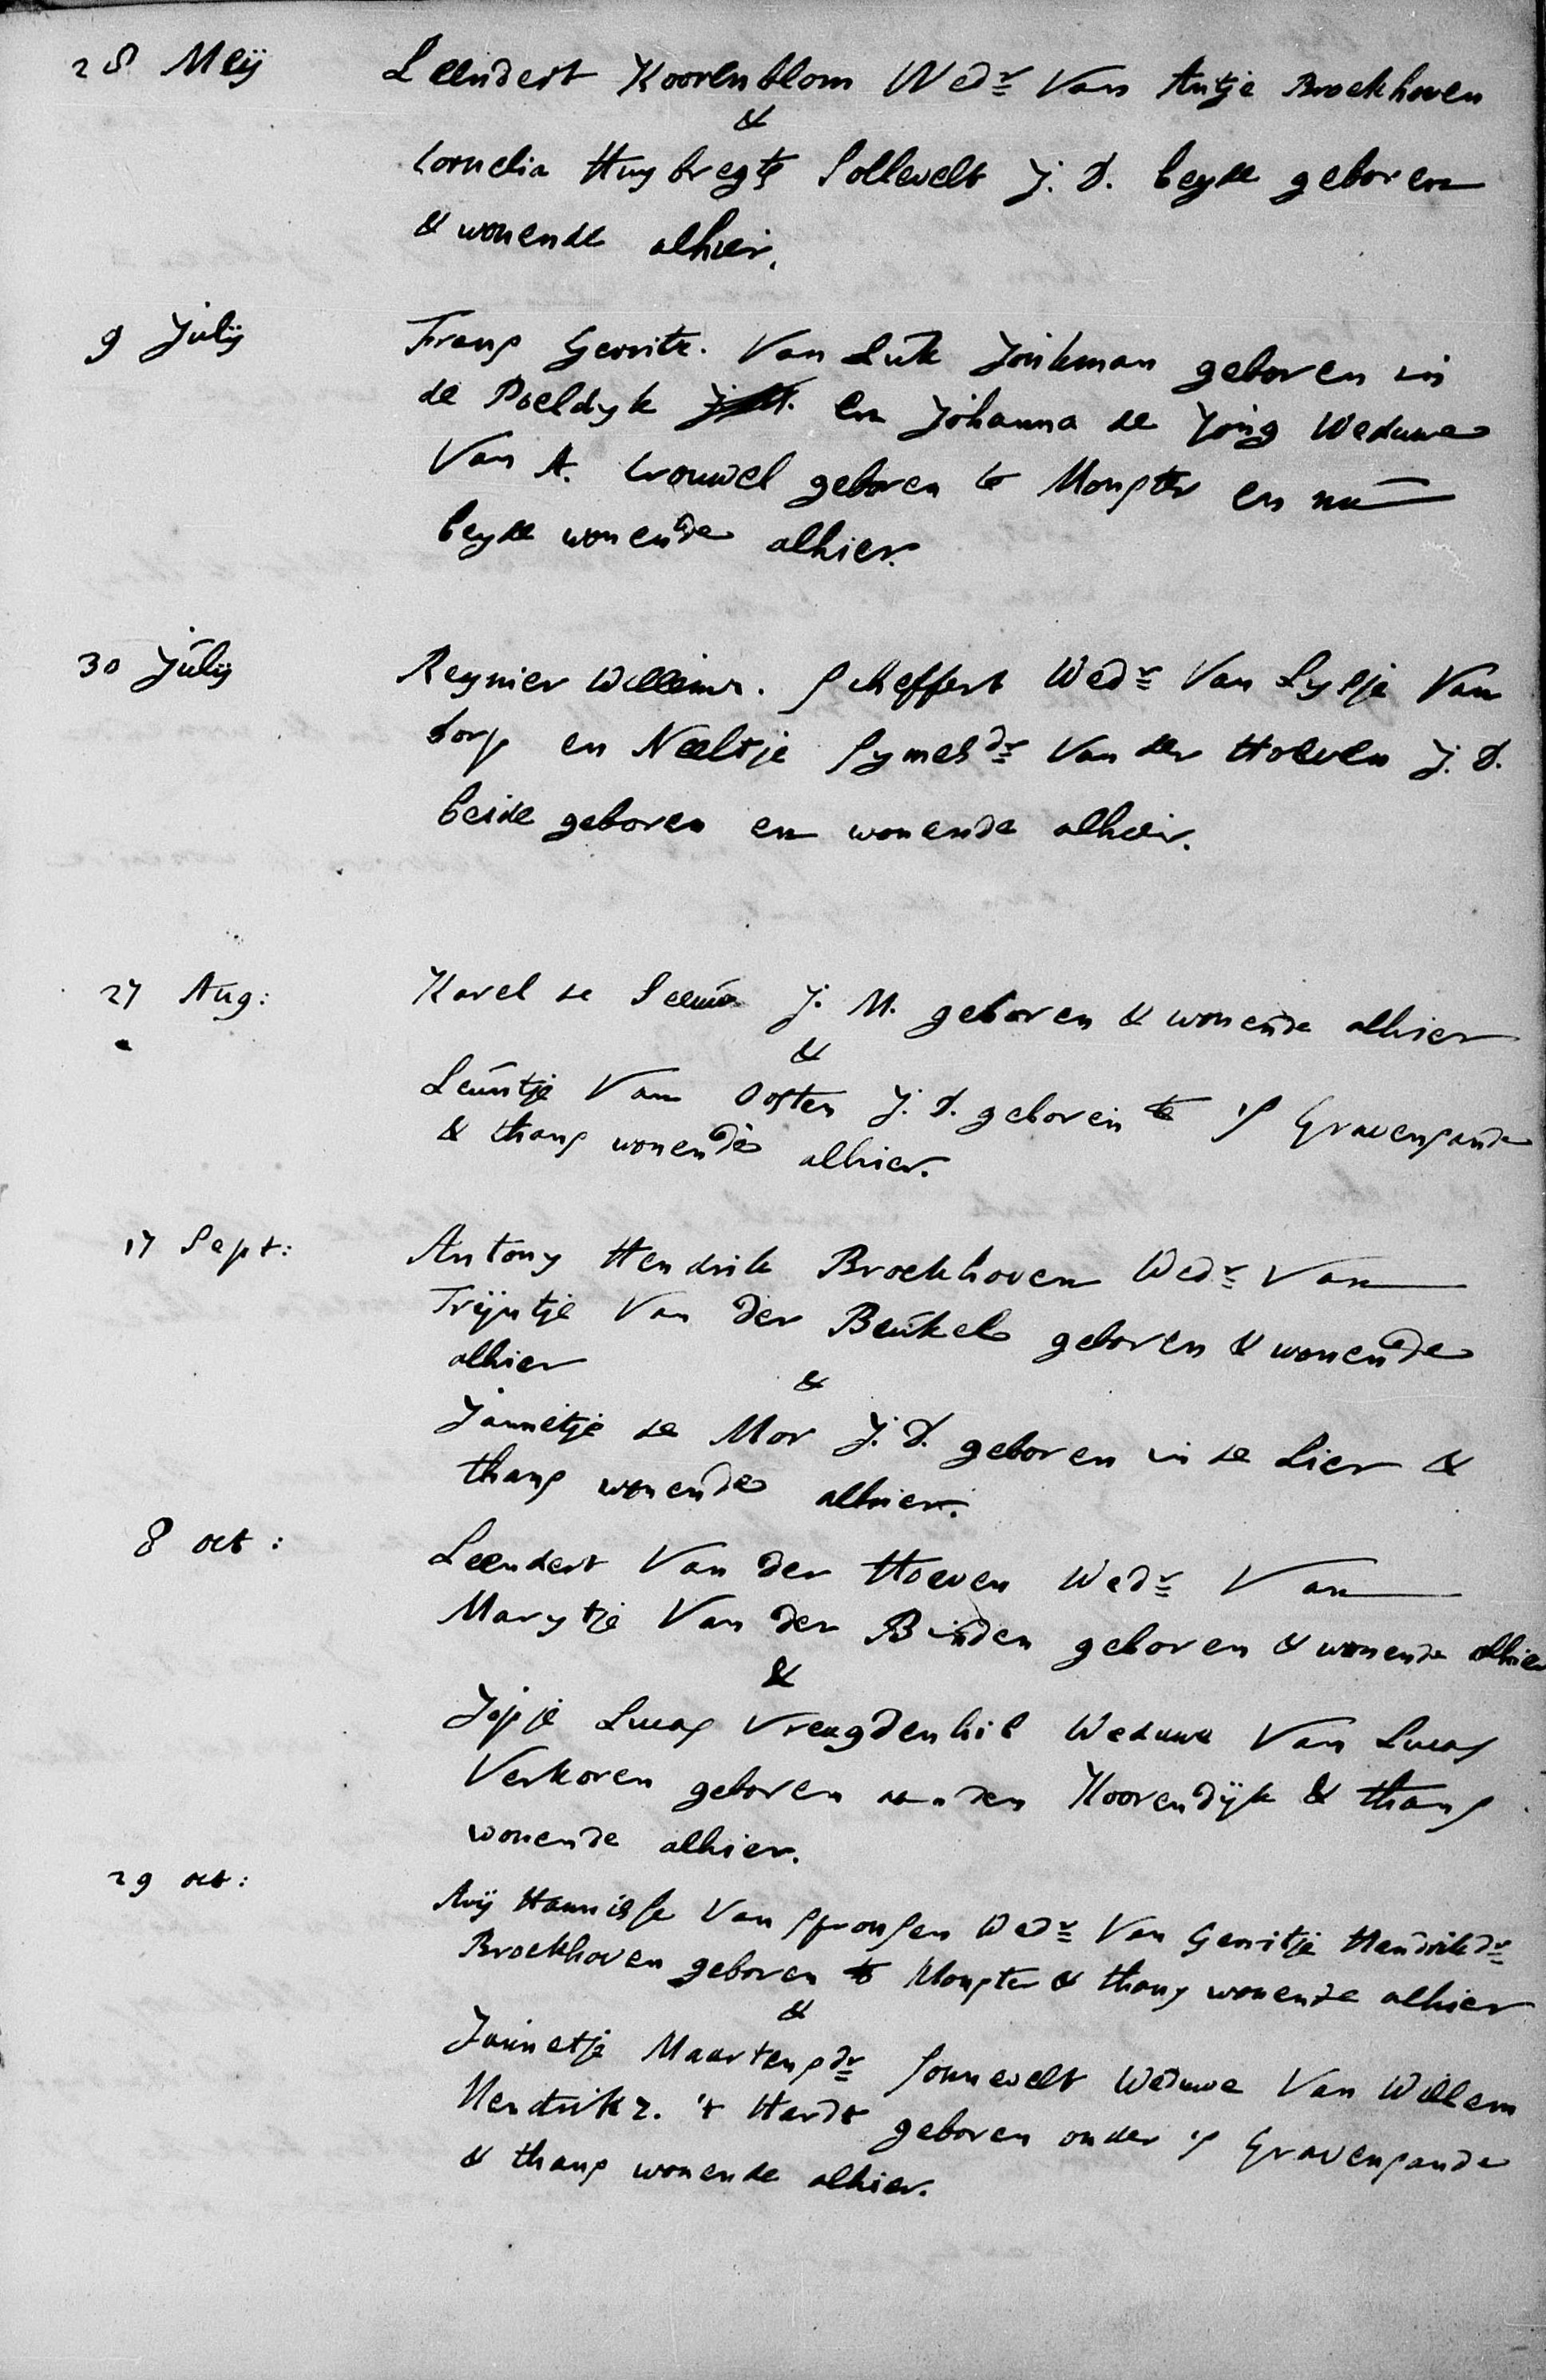 28 Meÿ Leendert Koorenblom Wedr Van Antje Broekhoven
&
Cornelia Huybregts Sollevelt J. D. beyde geboren
& wonende alhier.
9 Julÿ Frans Gerritz. Van Luik Jonkman geboren in
de Poeldyk en Johanna de Jong Weduwe
Van A. Crouwel geboren te Monster en nu
beyde wonende alhier.
30 Julÿ Reynier Willemz. Scheffert Wedr Van Lysje Van
dorp en Neeltje Symesdr Van der Hoeven J. D.
beide geboren en wonende alhier.
27 Aug: Karel de J. M. geboren & wonende alhier
&
Leuntje Van Oosten J. D. geboren te 's Gravensande
& thans wonende alhier.
17 Sept: Antony Hendrik Broekhoven Wedr Van
Trÿntje Van Der Beukel geboren & wonende
alhier &
Jannetje de Mor J. D. geboren in de Lier &
thans wonende alhier.
8 oct: Leendert Van der Hoeven Wedr Van
Marytje Van der Binden geboren & wonende alhier
&
Jopje Lucas Vreugdenhil Weduwe Van Lucas
Verkoren geboren aan den Koorendÿk & thans
wonende alhier.
29 oct: Arÿ Hannisse Van Spronsen Wedr Van Gerritje Hendrikdr
Broekhoven geboren te Monster & thans wonende alhier
&
Jannetje Maartensdr Sonnevelt Weduwe Van Willem
Hendrikz. 't Hardt geboren onder 's Gravensande
& thans wonende alhier.